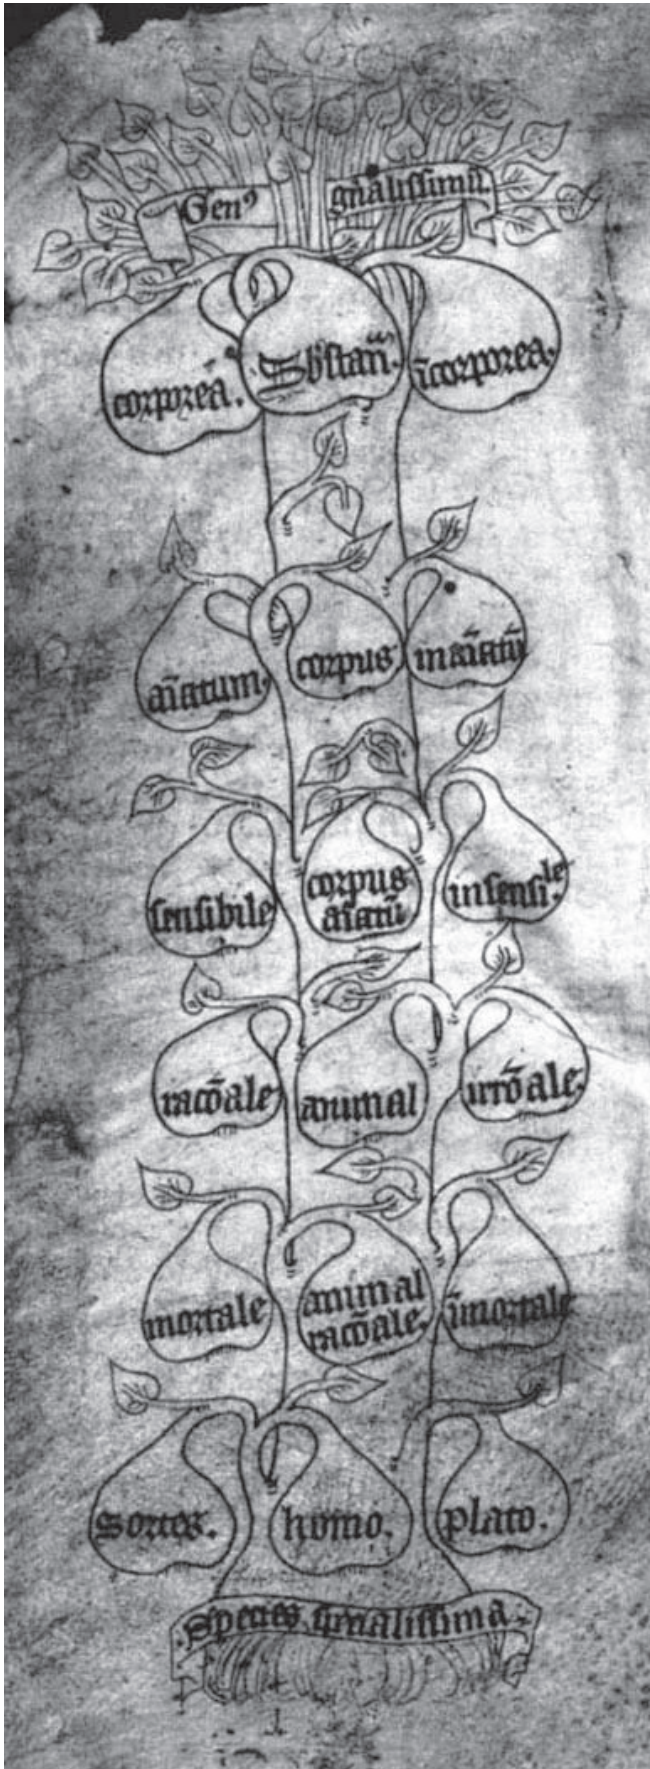 Gen⁹ gn̄alissimū.
corporea. Sb̄stan̄. īcorporea.
aīatum. corpus inaīatū
sensibile corpus aīatū insensi.le
racōale animal irrōale.
mortale animal racōale. īmortale
sortes. homo. plato.
Species sp̄ialissima.